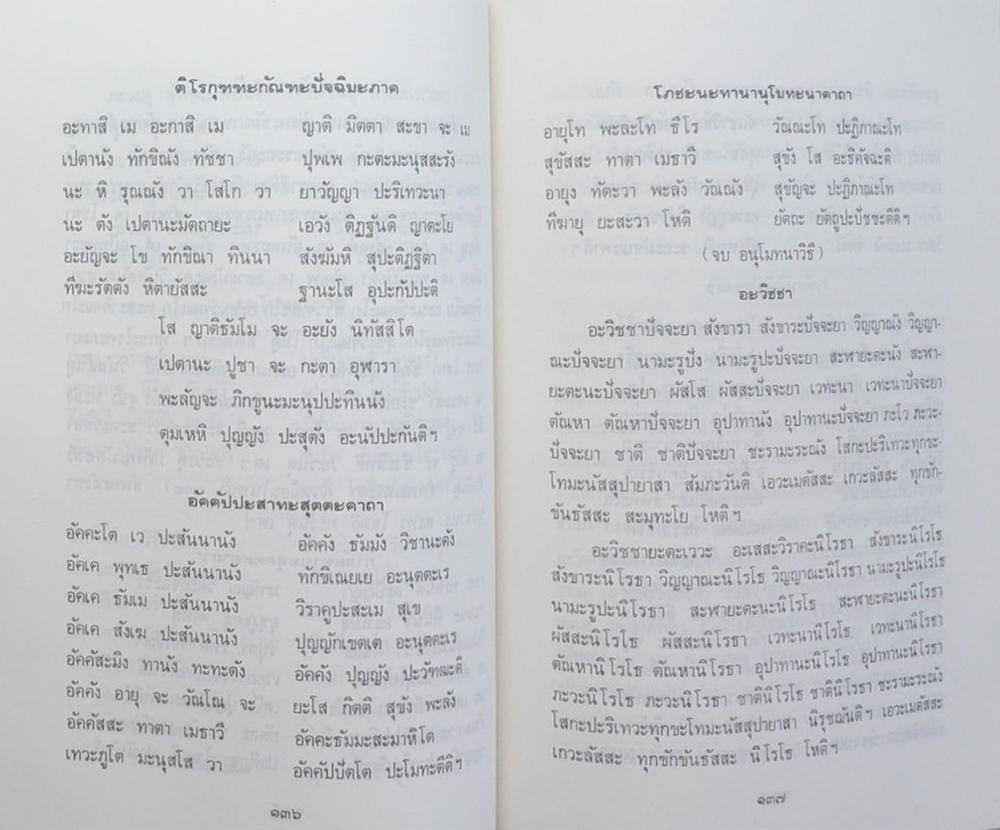 ติโรกุฑฑะกัณฑะปัจฉิมะภาค
อะทาสิ เม อะกาสิ เม ญาติ มิตตา สะขา จะ เม
เปตานัง ทักขิณัง ทัชชา ปุพเพ กะตะมะนุสสะรัง
นะ หิ รุณณัง วา โสโก วา ยาวัญญา ปะริเทวะนา
นะ ตัง เปตานะมัตถายะ เอวัง ติฏฐันติ ญาตะโย
อะยัญจะ โข ทักขิณา ทินนา สังฆัมหิ สุปะติฏฐิตา
ทีฆะรัตตัง หิตายัสสะ ฐานะโส อุปะกัปปะติ
โส ญาติธัมโม จะ อะยัง นิทัสสิโต
เปตานะ ปูชา จะ กะตา อุฬารา
พะลัญจะ ภิกขูนะมะนุปปะทินนัง
ตุมเหหิ ปุญญัง ปะสุตัง อะนัปปะกันติฯ
อัคคัปปะสาทะสุตตะคาถา
อัคคะโต เว ปะสันนานัง อัคคัง ธัมมัง วิชานะตัง
อัคเค พุทเธ ปะสันนานัง ทักขิเณยเย อะนุตตะเร
อัคเค ธัมเม ปะสันนานัง วิราคูปะสะเม สุเข
อัคเค สังเฆ ปะสันนานัง ปุญญักเขตเต อะนุตตะเร
อัคคัสะมิง ทานัง ทะทะตัง อัคคัง ปุญญัง ปะวัฑฒะติ
อัคคัง อายุ จะ วัณโณ จะ ยะโส กิตติ สุขัง พะลัง
อัคคัสสะ ทาตา เมธาวี อัคคะธัมมะสะมาหิโต
เทวะภูโต มะนุสโส วา อัคคัปปัตโต ปะโมทะตีติฯ
๑๓๖
โภชะนะทานานุโมทะนาคาถา
อายุโท พะละโท ธีโร วัณณะโท ปะฏิภาณะโท
สุขัสสะ ทาตา เมธาวี สุขัง โส อะธิคัจฉะติ
อายุง ทัตะวา พะลัง วัณณัง สุขัญจะ ปะฏิภาณะโท
ทีฆายุ ยะสะวา โหติ ยัตถะ ยัตถูปะปัชชะตีติฯ
(จบ อนุโมทนาวิธี)
อะวิชชา
อะวิชชาปัจจะยา สังขารา สังขาระปัจจะยา วิญญาณัง วิญญา-
ณะปัจจะยา นามะรูปัง นามะรูปะปัจจะยา สะฬายะตะนัง สะฬา-
ยะตะนะปัจจะยา ผัสโส ผัสสะปัจจะยา เวทะนา เวทะนาปัจจะยา
ตัณหา ตัณหาปัจจะยา อุปาทานัง อุปาทานะปัจจะยา ภะโว ภะวะ-
ปัจจะยา ชาติ ชาติปัจจะยา ชะรามะระณัง โสกะปะริเทวะทุกขะ-
โทมะนัสสุปายาสา สัมภะวันติ เอวะเมตัสสะ เกวะลัสสะ ทุกขัก-
ขันธัสสะ สะมุทะโย โหติฯ
อะวิชชายะตะเววะ อะเสสะวิราคะนิโรธา สังขาระนิโรโธ
สังขาระนิโรธา วิญญาณะนิโรโธ วิญญาณะนิโรธา นามะรูปะนิโรโธ
นามะรูปะนิโรธา สะฬายะตะนะนิโรโธ สะฬายะตะนะนิโรธา
ผัสสะนิโรโธ ผัสสะนิโรธา เวทะนานิโรโธ เวทะนานิโรธา
ตัณหานิโรโธ ตัณหานิโรธา อุปาทานะนิโรโธ อุปาทานะนิโรธา
ภะวะนิโรโธ ภะวะนิโรธา ชาตินิโรโธ ชาตินิโรธา ชะรามะระณัง
โสกะปะริเทวะทุกขะโทมะนัสสุปายาสา นิรุชฌันติฯ เอวะเมตัสสะ
เกวะลัสสะ ทุกขักขันธัสสะ นิโรโธ โหติฯ
๑๓๗